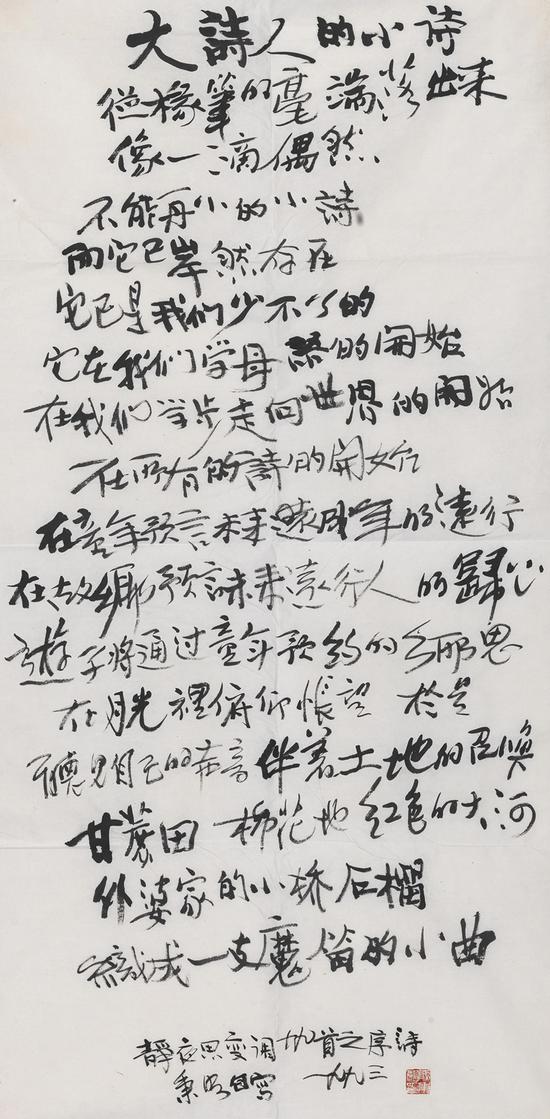 大詩人的小詩
從椽筆的毫端落出来
像一滴偶然
不能再小的小詩
而它已岸然存在
它已是我们少不了的
它在我们学母語的開始
在我们学步走向世界的開始
在所有的詩的開始
在童年预言未来遠成年的遠行
在故鄉预言未来遠行人的歸心
遊子将通过童年预约的乡思
在月光裡俯仰悵望 於是
聽見自己的声音伴着土地的召喚
甘蔗田 棉花地 红色的大河
外婆家的小桥石榴
織成一支魔笛的小曲
靜夜思变调 九首之序詩
秉明自寫 一九九三